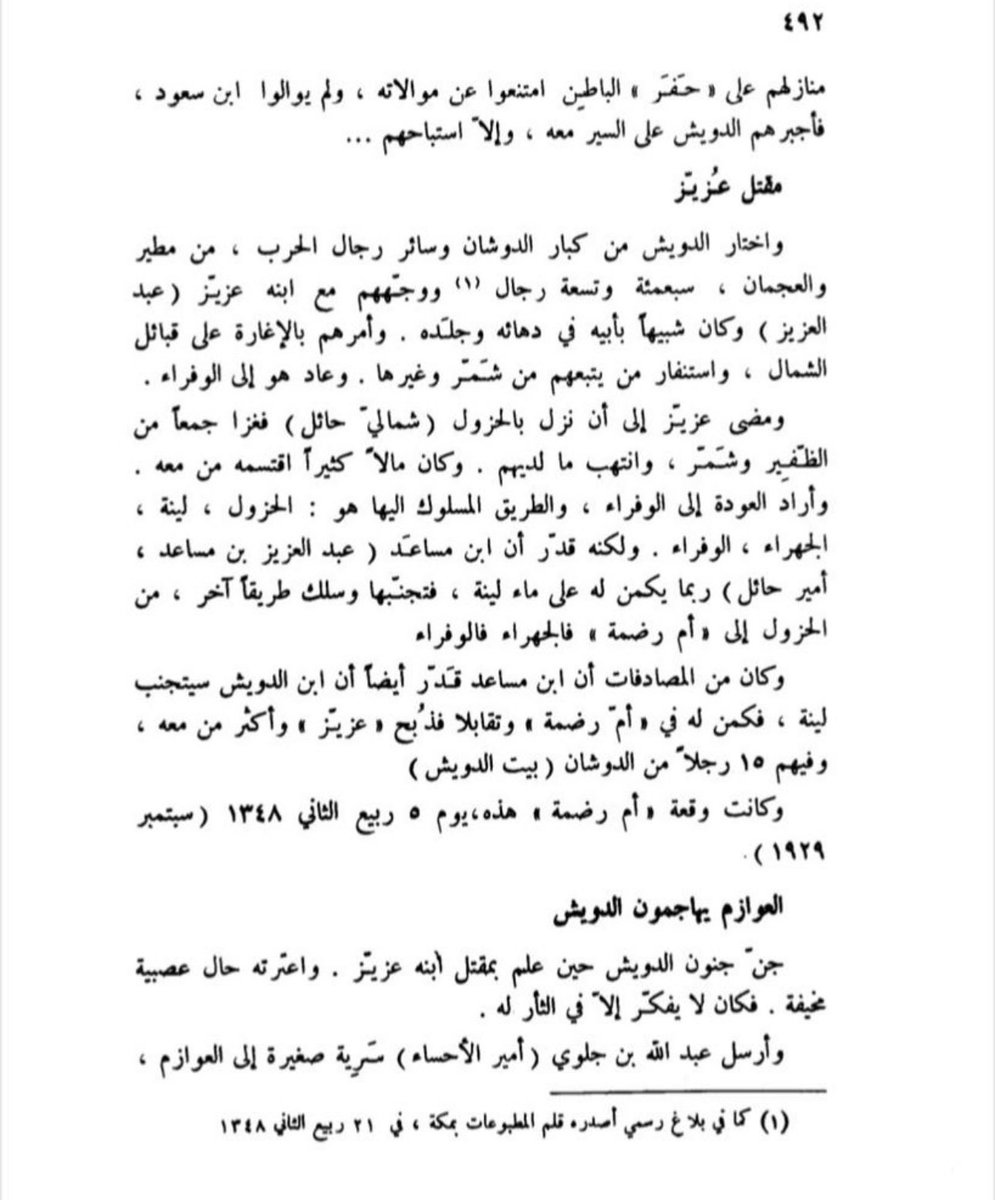 ٤٩٢
منازلهم على «حَفَرَ» الباطِن امتنعوا عن موالاته ، ولم يوالوا ابن سعود ،
فأجبرهم الدويش على السير معه ، وإلاّ استباحهم ...
مقتل عُزيّز
واختار الدويش من كبار الدوشان وسائر رجال الحرب ، من مطير
والعجمان ، سبعمئة وتسعة رجال (١) ووجّههم مع ابنه عزيّز (عبد
العزيز) وكان شبيهاً بأبيه في دهائه وجلَده . وأمرهم بالإغارة على قبائل
الشمال ، واستنفار من يتبعهم من شَمّر وغيرها . وعاد هو إلى الوفراء .
ومضى عزيّز إلى أن نزل بالحزول (شماليّ حائل) فغزا جمعاً من
الظّفِير وشَمّر ، وانتهب ما لديهم . وكان مالاً كثيراً اقتسمه من معه .
وأراد العودة إلى الوفراء ، والطريق المسلوك اليها هو : الحزول ، لينة ،
الجهراء ، الوفراء . ولكنه قدّر أن ابن مساعَد ( عبد العزيز بن مساعد ،
أمير حائل) ربما يكمن له على ماء لينة ، فتجنّبها وسلك طريقاً آخر ، من
الحزول إلى «أم رضمة» فالجهراء فالوفراء
وكان من المصادفات أن ابن مساعد قَدّر أيضاً أن ابن الدويش سيتجنب
لينة ، فكمن له في «أمّ رضمة» وتقابلا فذُبح «عزيّز» وأكثر من معه ،
وفيهم ١٥ رجلاً من الدوشان (بيت الدويش)
وكانت وقعة «أم رضمة» هذه،يوم ٥ ربيع الثاني ١٣٤٨ (سبتمبر
١٩٢٩).
العوازم يهاجمون الدويش
جنّ جنون الدويش حين علم بمقتل أبنه عزيّز . واعترته حال عصبية
مخيفة . فكان لا يفكّر إلاّ في الثأر له .
وأرسل عبد الله بن جلوي (أمير الأحساء) سَرِية صغيرة إلى العوازم ،
(١) كما في بلاغ رسمي أصدره قلم المطبوعات بمكة ، في ٢١ ربيع الثاني ١٣٤٨